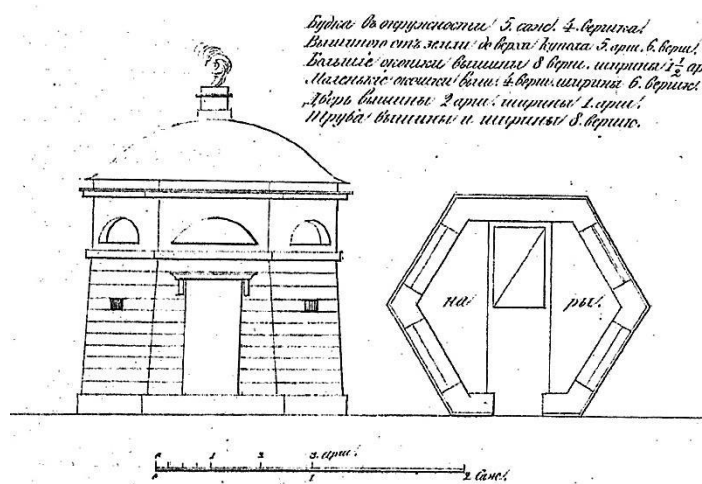 Будка въ окружности 5. саж. 4. вершка.
Вышиною отъ земли до верха купола 5. арш. 6. верш.
Большіе окошки вышины 8 верш. ширина 1 1/2 ар
Маленькіе окошки выш. 4. верш. ширина 6. вершк.
Дверь вышины 2 арш. ширины 1. арш.
Труба вышины и ширины 8. вершк.
на ры.
0 1 2 3. арш.
0 1 2 Саж.